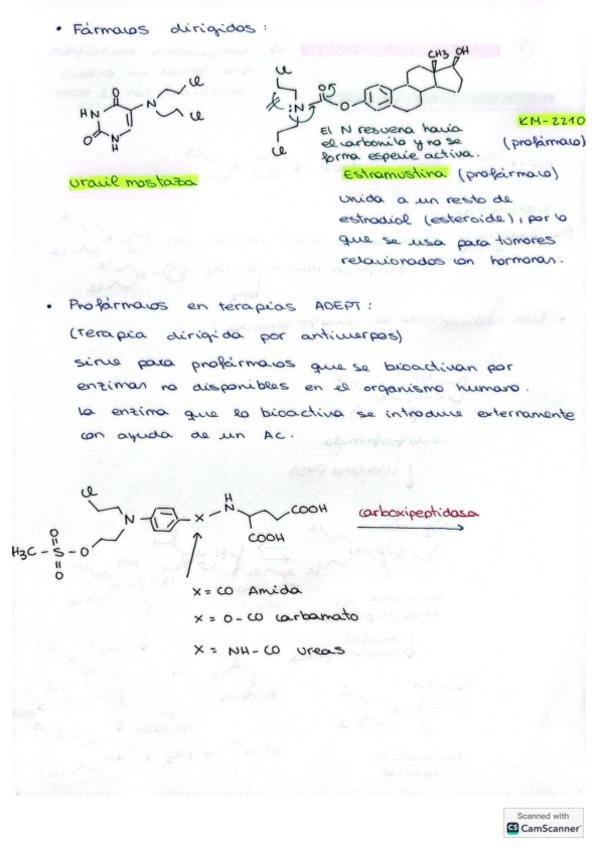 • Fármacos dirigidos:
Cl
O
N
Cl
HN
O
N
H
uracil mostaza
Cl
:N
Cl
O
O
CH3
OH
El N resuena hacia
el carbonilo y no se
forma especie activa.
KM-2210
(profármaco)
Estramustina (profármaco)
unida a un resto de
estradiol (esteroide), por lo
que se usa para tumores
relacionados con hormonas.
• Profármacos en terapias ADEPT:
(Terapia dirigida por anticuerpos)
sirve para profármacos que se bioactivan por
enzimas no disponibles en el organismo humano.
la enzima que lo bioactiva se introduce externamente
con ayuda de un Ac.
Cl
N
X
H
N
COOH
COOH
O
H3C-S-O
O
carboxipeptidasa
X = CO Amida
X = O-CO carbamato
X = NH-CO ureas
Scanned with
CS CamScanner